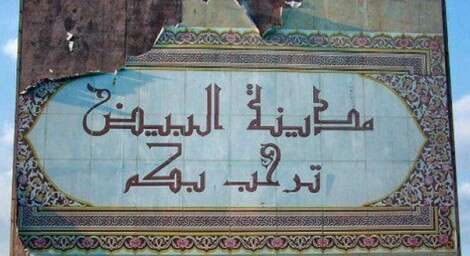 مدينة البيض
ترحب بكم